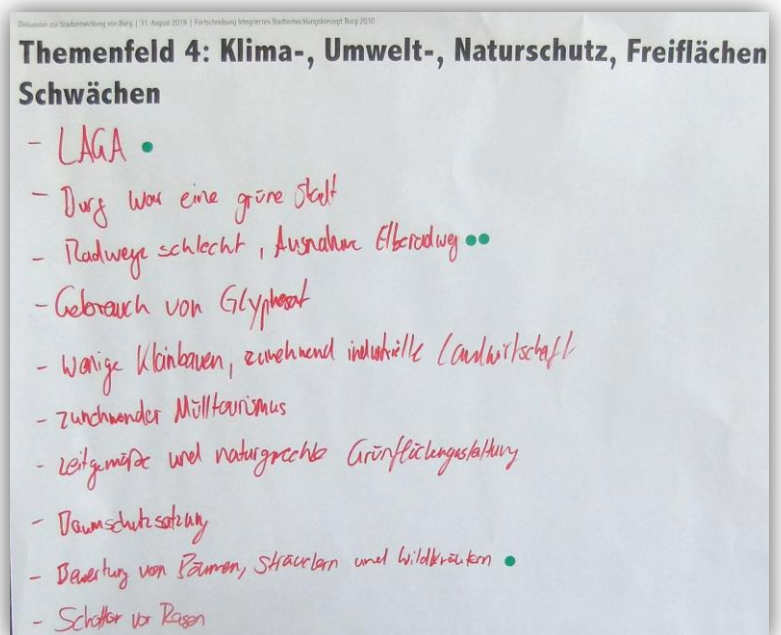 Diskussion zur Stadtentwicklung von Burg | 31. August 2019 | Fortschreibung Integriertes Stadtentwicklungskonzept Burg 2030
Themenfeld 4: Klima-, Umwelt-, Naturschutz, Freiflächen
Schwächen
- LAGA
- Burg war eine grüne Stadt
- Radwege schlecht, Ausnahme Elberadweg
- Gebrauch von Glyphosat
- wenige Kleinbauern, zunehmend industrielle Landwirtschaft
- zunehmender Mülltourismus
- zeitgemäße und naturgerechte Grünflächengestaltung
- Baumschutzsatzung
- Bewertung von Bäumen, Sträuchern und Wildkräutern
- Schotter vor Rasen